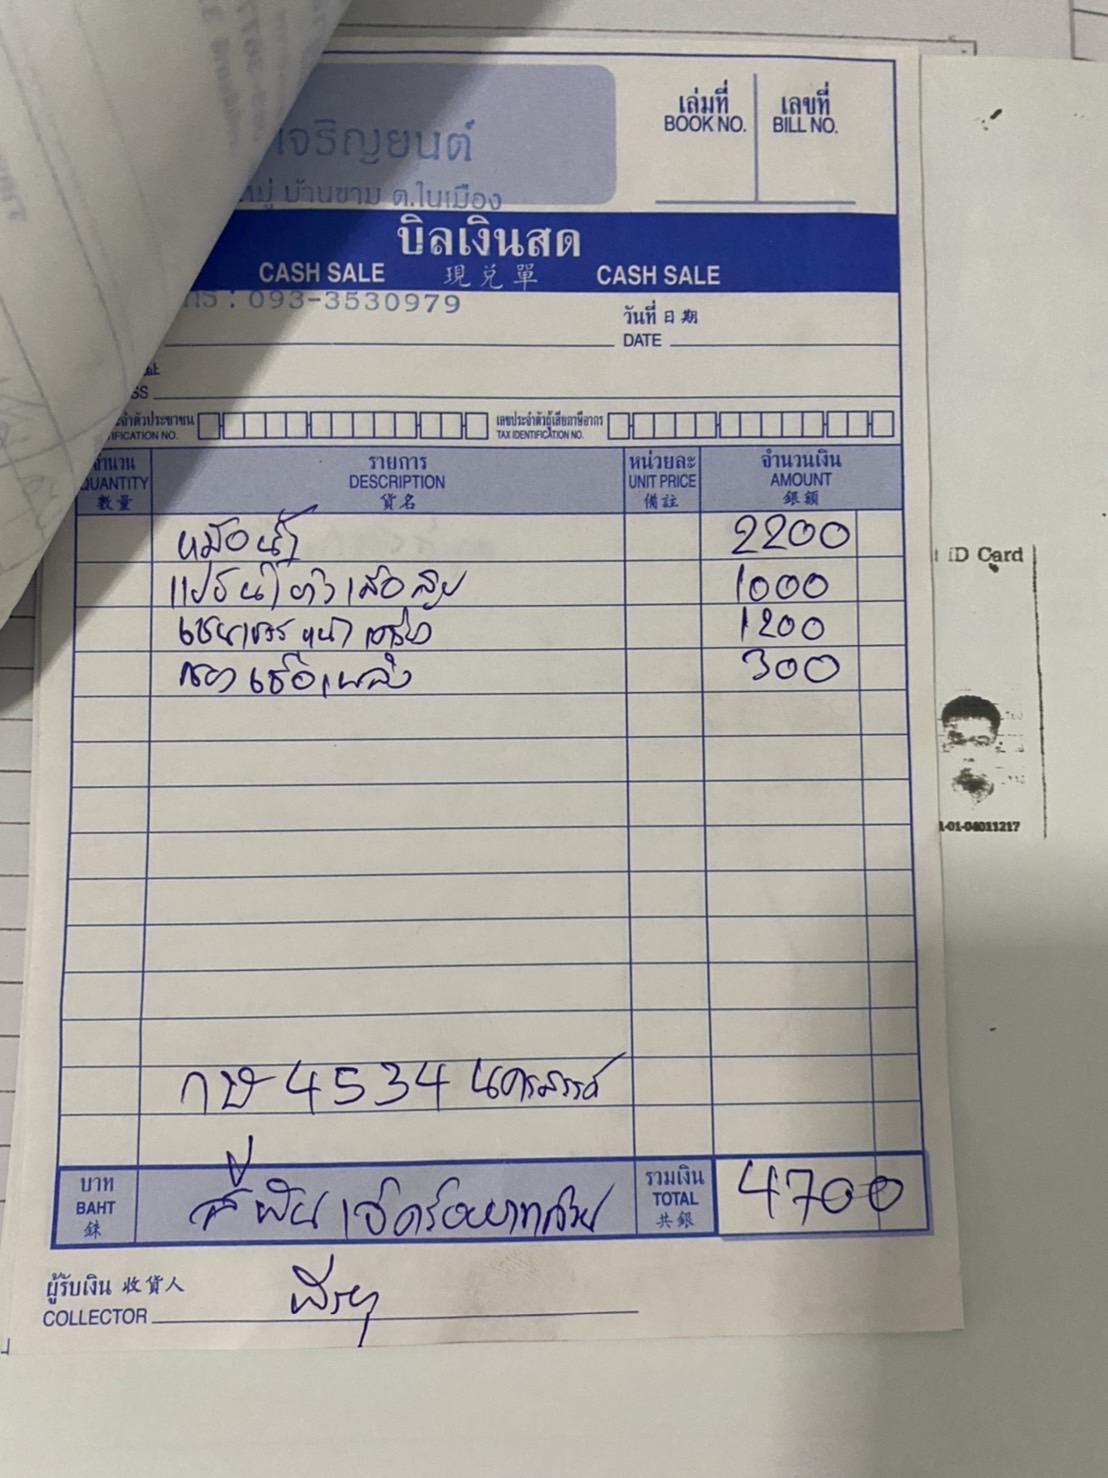 เจริญยนต์
หมู่ บ้านขาม ต.ในเมือง
เล่มที่
BOOK NO.
เลขที่
BILL NO.
บิลเงินสด
CASH SALE 現兌單 CASH SALE
โทร : 093-3530979
วันที่ 日期
DATE
SS
ประจำตัวประชาชน
IFICATION NO.
เลขประจำตัวผู้เสียภาษีอากร
TAX IDENTIFICATION NO.
จำนวน รายการ หน่วยละ จำนวนเงิน
QUANTITY DESCRIPTION UNIT PRICE AMOUNT
數量 貨名 備註 銀額
หม้อน้ำ 2200
1000
เซนเซอร์ 1200
เชื้อเพลิง 300
กษ 4534 นครสวรรค์
บาท
BAHT
銖
สี่พันเจ็ดร้อยบาทถ้วน
รวมเงิน
TOTAL
共銀
4700
ผู้รับเงิน 收貨人
COLLECTOR
iD Card
1-01-04011217